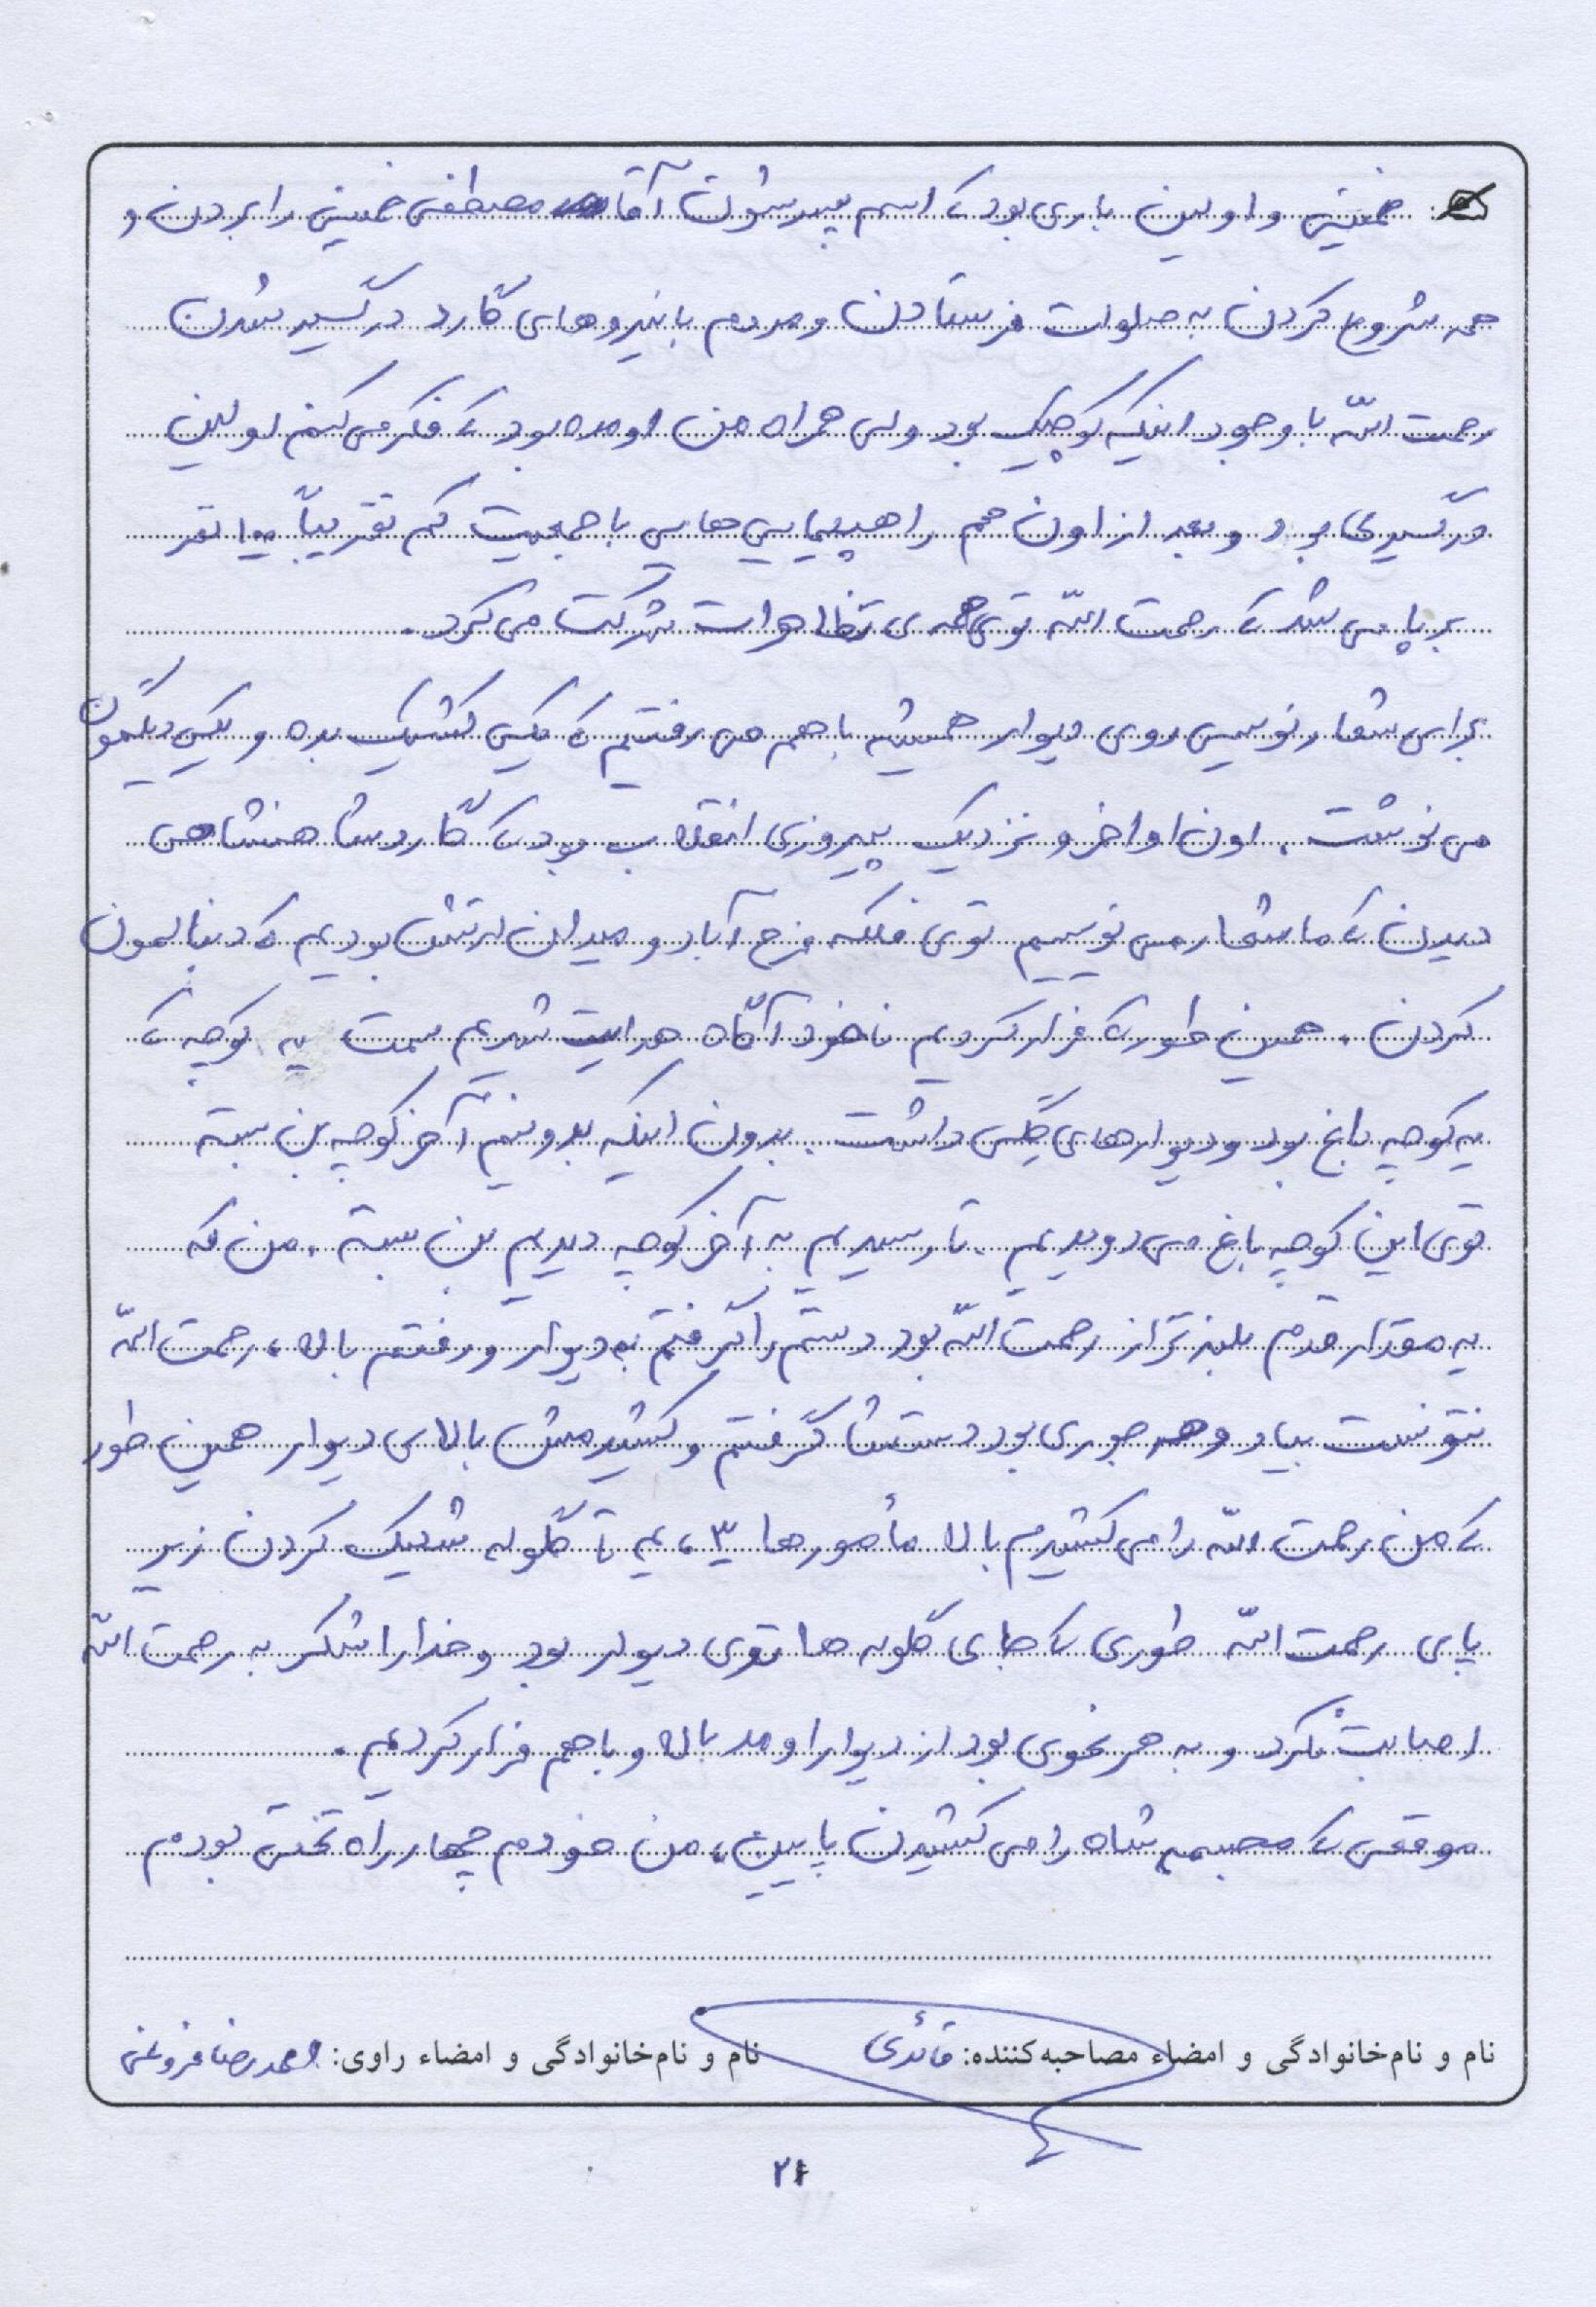 خمینی و اولین باری بود که اسم پسرشون آقا مصطفی خمینی را بردن و
همه شروع کردن به صلوات فرستادن و مردم با نیروهای گارد درگیر شدن
رحمت الله با وجود اینکه کوچیک بود ولی همراه من اومده بود که فکر می کنم اولین
درگیری بود و بعد از اون هم راهپیمایی هایی با جمعیت کم تقریباً ۱۰۰ نفر
برپا می شد که رحمت الله توی همه ی تظاهرات شرکت می کرد.
برای شعارنویسی روی دیوار همیشه با هم می رفتیم که یکی کشیک بده و یکی دیگمون
می نوشت. اون اواخر و نزدیک پیروزی انقلاب بود که گارد شاهنشاهی
دیدن که ما شعار می نویسیم توی فلکه فرح آباد و میدان ارتش بودیم که دنبالمون
کردن. همین طور که فرار کردیم ناخودآگاه هدایت شدیم سمت یه کوچه که
یه کوچه باغ بود و دیوارهای گِلی داشت. بدون اینکه بدونیم آخر کوچه بن بسته
توی این کوچه باغ می دویدیم. تا رسیدیم به آخر کوچه دیدیم بن بسته. من که
یه مقدار قدم بلندتر از رحمت الله بود دستم را گرفتم به دیوار و رفتم بالا، رحمت الله
نتونست بیاد و هر جوری بود دستشا گرفتم و کشیدمش بالای دیوار همین طور
که من رحمت الله را می کشیدم بالا مأمورها ۳، ۴ تا گلوله شلیک کردن زیر
پای رحمت الله طوری که جای گلوله ها توی دیوار بود و خدا را شکر به رحمت الله
اصابت نکرد و به هر نحوی بود از دیوار اومد بالا و با هم فرار کردیم.
موقعی که مجسمه شاه را می کشیدن پایین، من خودم چهارراه تختی بودم
نام و نام‌خانوادگی و امضاء مصاحبه‌کننده: قائدی نام و نام‌خانوادگی و امضاء راوی: احمدرضا فروغی
۲۱